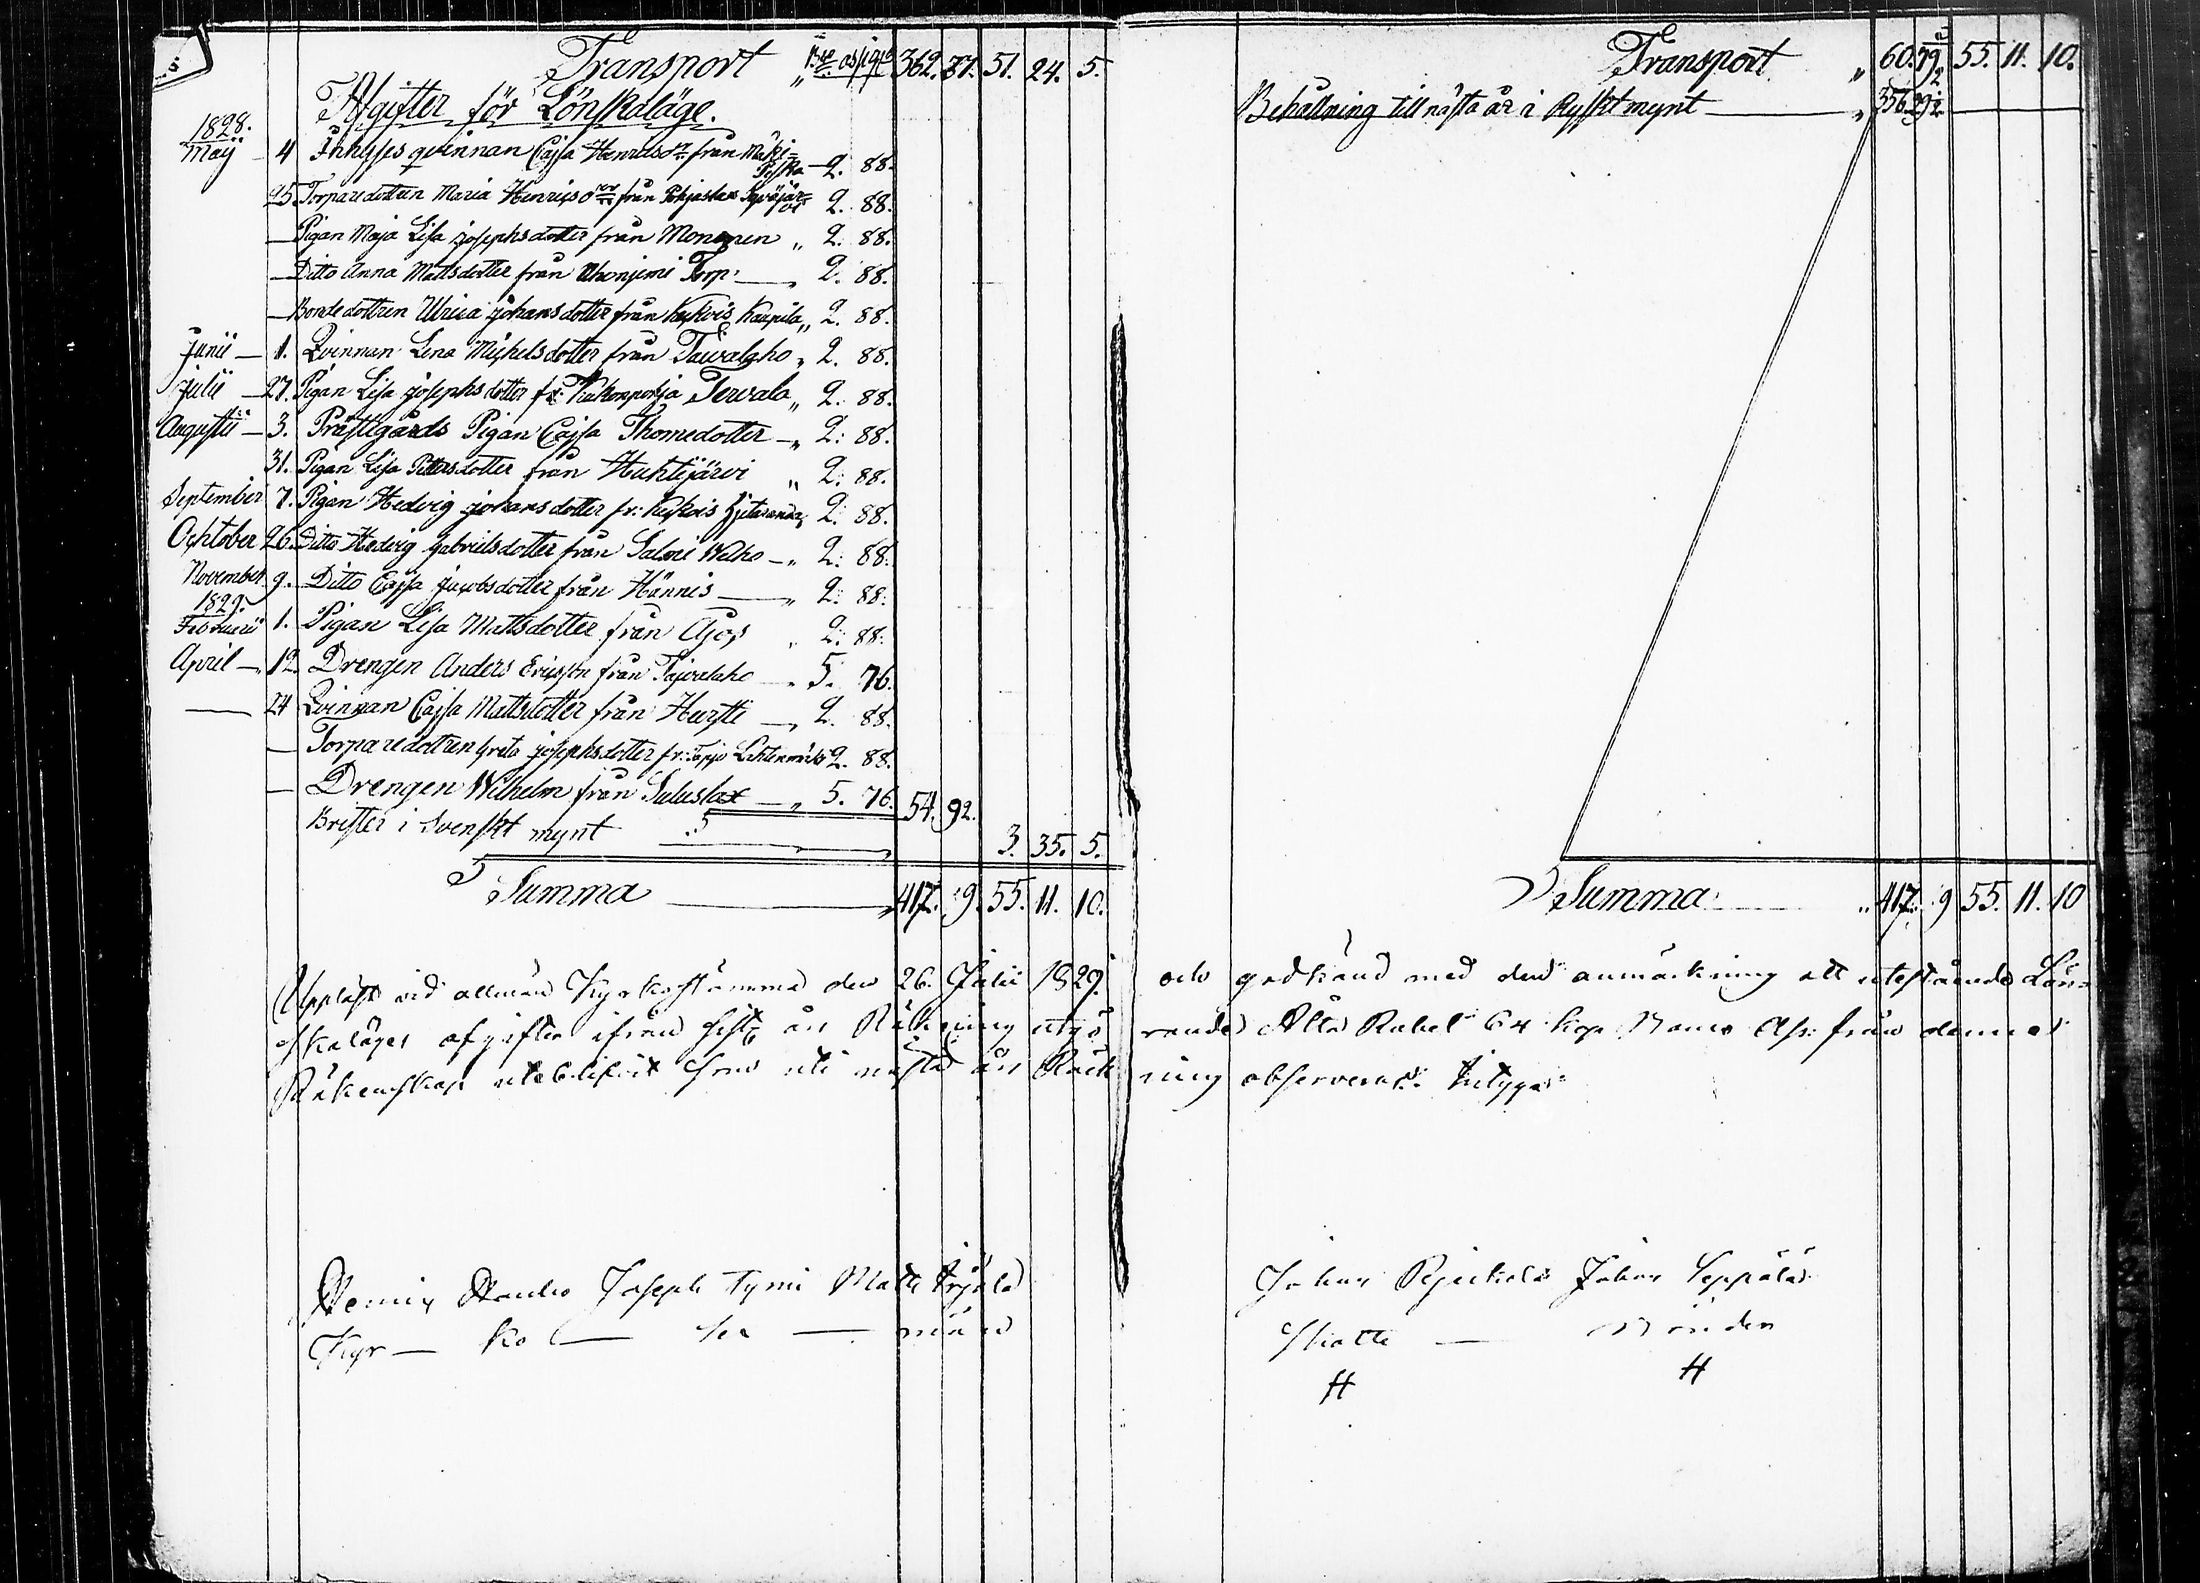 Transport „ 362. 37. 51. 24. 5.
Afgifter för Lönskaläge.
1828.
Maij — 4 Inhyses qvinnan Cajsa Henrics dr. från Mäki=
Peska — 2. 88.
25. Torparedottren Maria Henrics dr från Pohjaslax 2. 88.
— Pigan Maja Lisa Josephsdotter från Mononen „ 2. 88.
— Ditto Anna Mattsdotter från Torp. — „ 2. 88.
— Bondedottren Ulrica Johansdotter från Kaupila „ 2. 88.
Junii — 1. Qvinnan Lena Michelsdotter från Taivalaho „ 2. 88.
Julii — 27. Pigan Lisa Josephsdotter fr: Tervala „ 2. 88.
Augustii — 3. Prästegårds Pigan Cajsa Thomedotter — „ 2. 88.
31. Pigan Lisa Pettersdotter från Huhtijärvi „ 2. 88.
September 7. Pigan Hedvig Johansdotter fr: 2. 88.
Ochtober 26. Ditto Hedvig Gabrielsdotter från Salmi — „ 2. 88.
November 9. Ditto Cajsa Jacobsdotter från Hännis — „ 2. 88.
1829.
Februarii 1. Pigan Lisa Mattsdotter från Ajos „ 2. 88.
April — 12. Drengen Anders Ericsson från Tajvalaho — „ 5. 76.
— 24 Qvinnan Cajsa Mattsdotter från Hurtti — „ 2. 88.
— Torparedottren Greta Josephsdotter fr: 2. 88.
— Drengen Wilhelm från — „ 5. 76. 54. 92.
Brister i Svenskt mynt — 3. 35. 5.
Summa — „ 417. 9. 55. 11. 10.
Transport „ 60. 79 55. 11. 10.
Behållning till nästa år i Rysskt mynt — „ 356.
Summa — „ 417. 9 55. 11. 10
Uppläst vid allmän Kyrkostämma den 26. Julii 1829. och godkänd med den anmärkning att utestående Lön=
skaläges afgifter ifrån sista års Räkning utgörande Åtta Rubel 64 kop. från denna
Räkenskap uteblifvit som uti nästa års Räkning observeras. Intygar
Joseph Tymi Matts
Kyr — ko — vär — män
Johan Johan Seppälä
Skatte — Bönder
H H